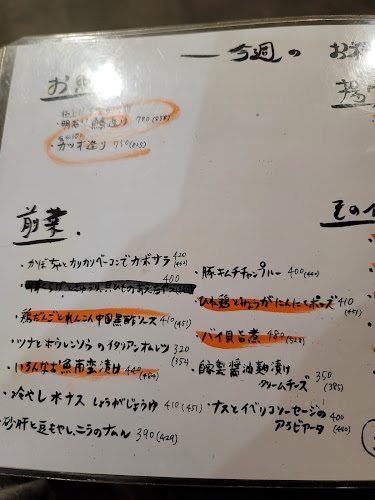 一 今週の お
お造
明石 鯛造り 780(858)
・カツオ造り 750(825)
揚
その他
前菜.
・かぼちゃとカリカリベーコンでカボサラ 420(462)
・豚キムチチャンプルー 400(440)
400
・ひね鶏とみょうがにんにくポーズ 410(451)
・鶏だんごとれんこん中国黒酢ソース 410(451)
・バイ貝旨煮 480(528)
・ツナとホウレンソウのイタリアンオムレツ 320(352)
・いろんなお魚南蛮漬け 440(484)
・自家製醤油麹漬けクリームチーズ 350(385)
・冷やし水ナス しょうがじょうゆ 410(451)
・ナスとイベリコソーセージのアラビアータ 400(440)
・砂肝と豆もやし、ニラのナムル 390(429)